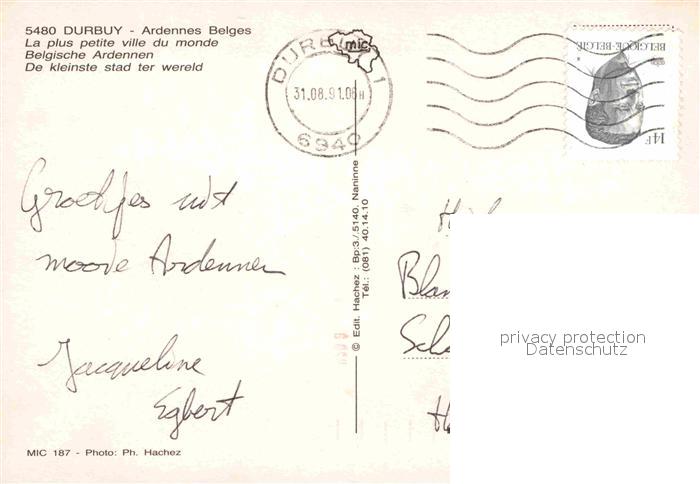 5480 DURBUY - Ardennes Belges
La plus petite ville du monde
Belgische Ardennen
De kleinste stad ter wereld
DURBUY 1
mic
31.08.91.08H
6940
BELGIQUE-BELGIE
14F
Groetjes uit
mooie Ardennen
Jacqueline
Egbert
© Edit. Hachez : Bp:3./5140. Naninne
Tél.: (081) 40.14.10
Blan
Sch
privacy protection
Datenschutz
MIC 187 - Photo: Ph. Hachez